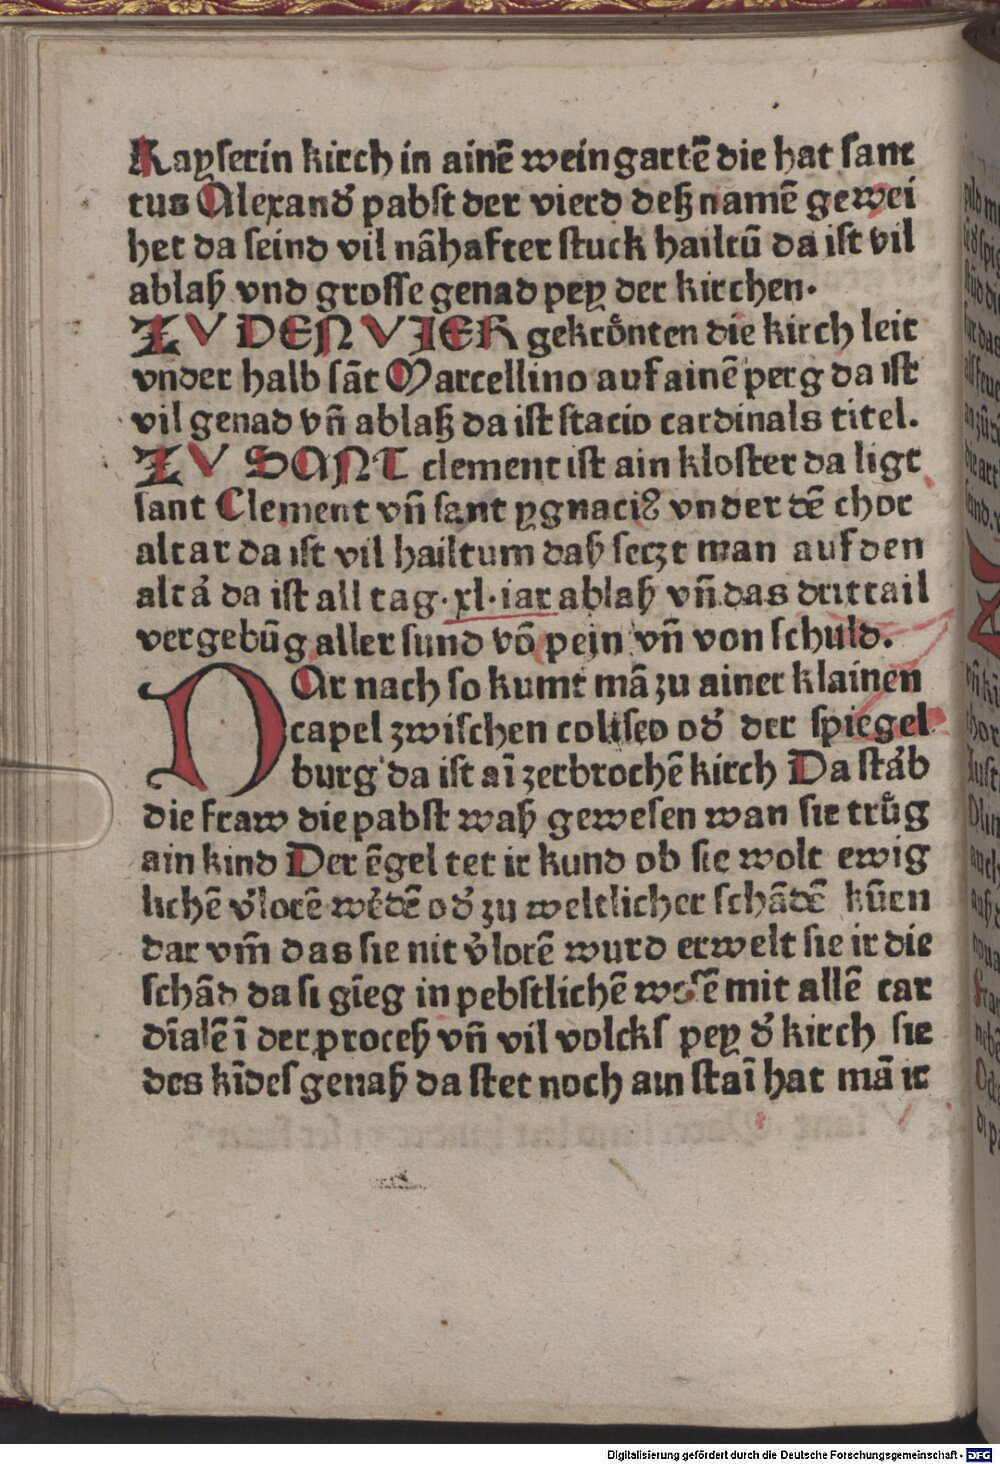 Kayserin kirch in ainē weingartē die hat sanc
tus Alexand᷑ pabst der vierd deß namē gewei
het da seind vil nāhafter stuck hailtū da ist vil
ablaß vnd grosse genad pey der kirchen.
ZV DEN VIER gekrönten die kirch leit
vnder halb sāt Marcellino auf ainē perg da ist
vil genad vn̄ ablaß da ist stacio cardinals titel.
ZV SANT clement ist ain kloster da ligt
sant Clement vn̄ sant ygnaciꝰ vnder dē chor
altar da ist vil hailtum daß seczt man auf den
altā da ist all tag·xl·iar ablaß vn̄ das drittail
vergebūg aller sund vō pein vn̄ von schuld.
DAr nach so kumt mā zu ainer klainen
capel zwischen coliseo od᷑ der spiegel
burg da ist aī zerbrochē kirch Da starb
die fraw die pabst waß gewesen wan sie trůg
ain kind Der ēgel tet ir kund ob sie wolt ewig
lichē v᷑lorē we᷑dē od᷑ zu weltlicher schādē kūen
dar vm̄ das sie nit v᷑lorē wurd erwelt sie ir die
schād da si gīeg in pebstlichē wesē mit allē car
dīalē ī der proceß vn̄ vil volcks pey d᷑ kirch sie
des kīdes genaß da stet noch ain staī hat mā ir
Digitalisierung gefördert durch die Deutsche Forschungsgemeinschaft - DFG